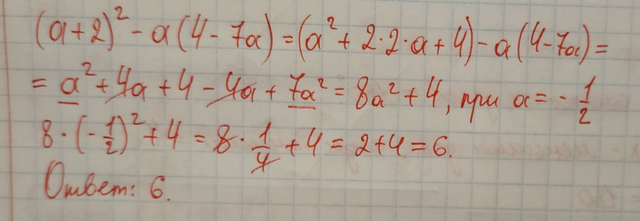 (a+2)² - a(4-7a) = (a² + 2·2·a + 4) - a(4-7a) =
= a² + 4a + 4 - 4a + 7a² = 8a² + 4, при a = - 1/2
8 · (-1/2)² + 4 = 8 · 1/4 + 4 = 2+4 = 6.
Ответ: 6.